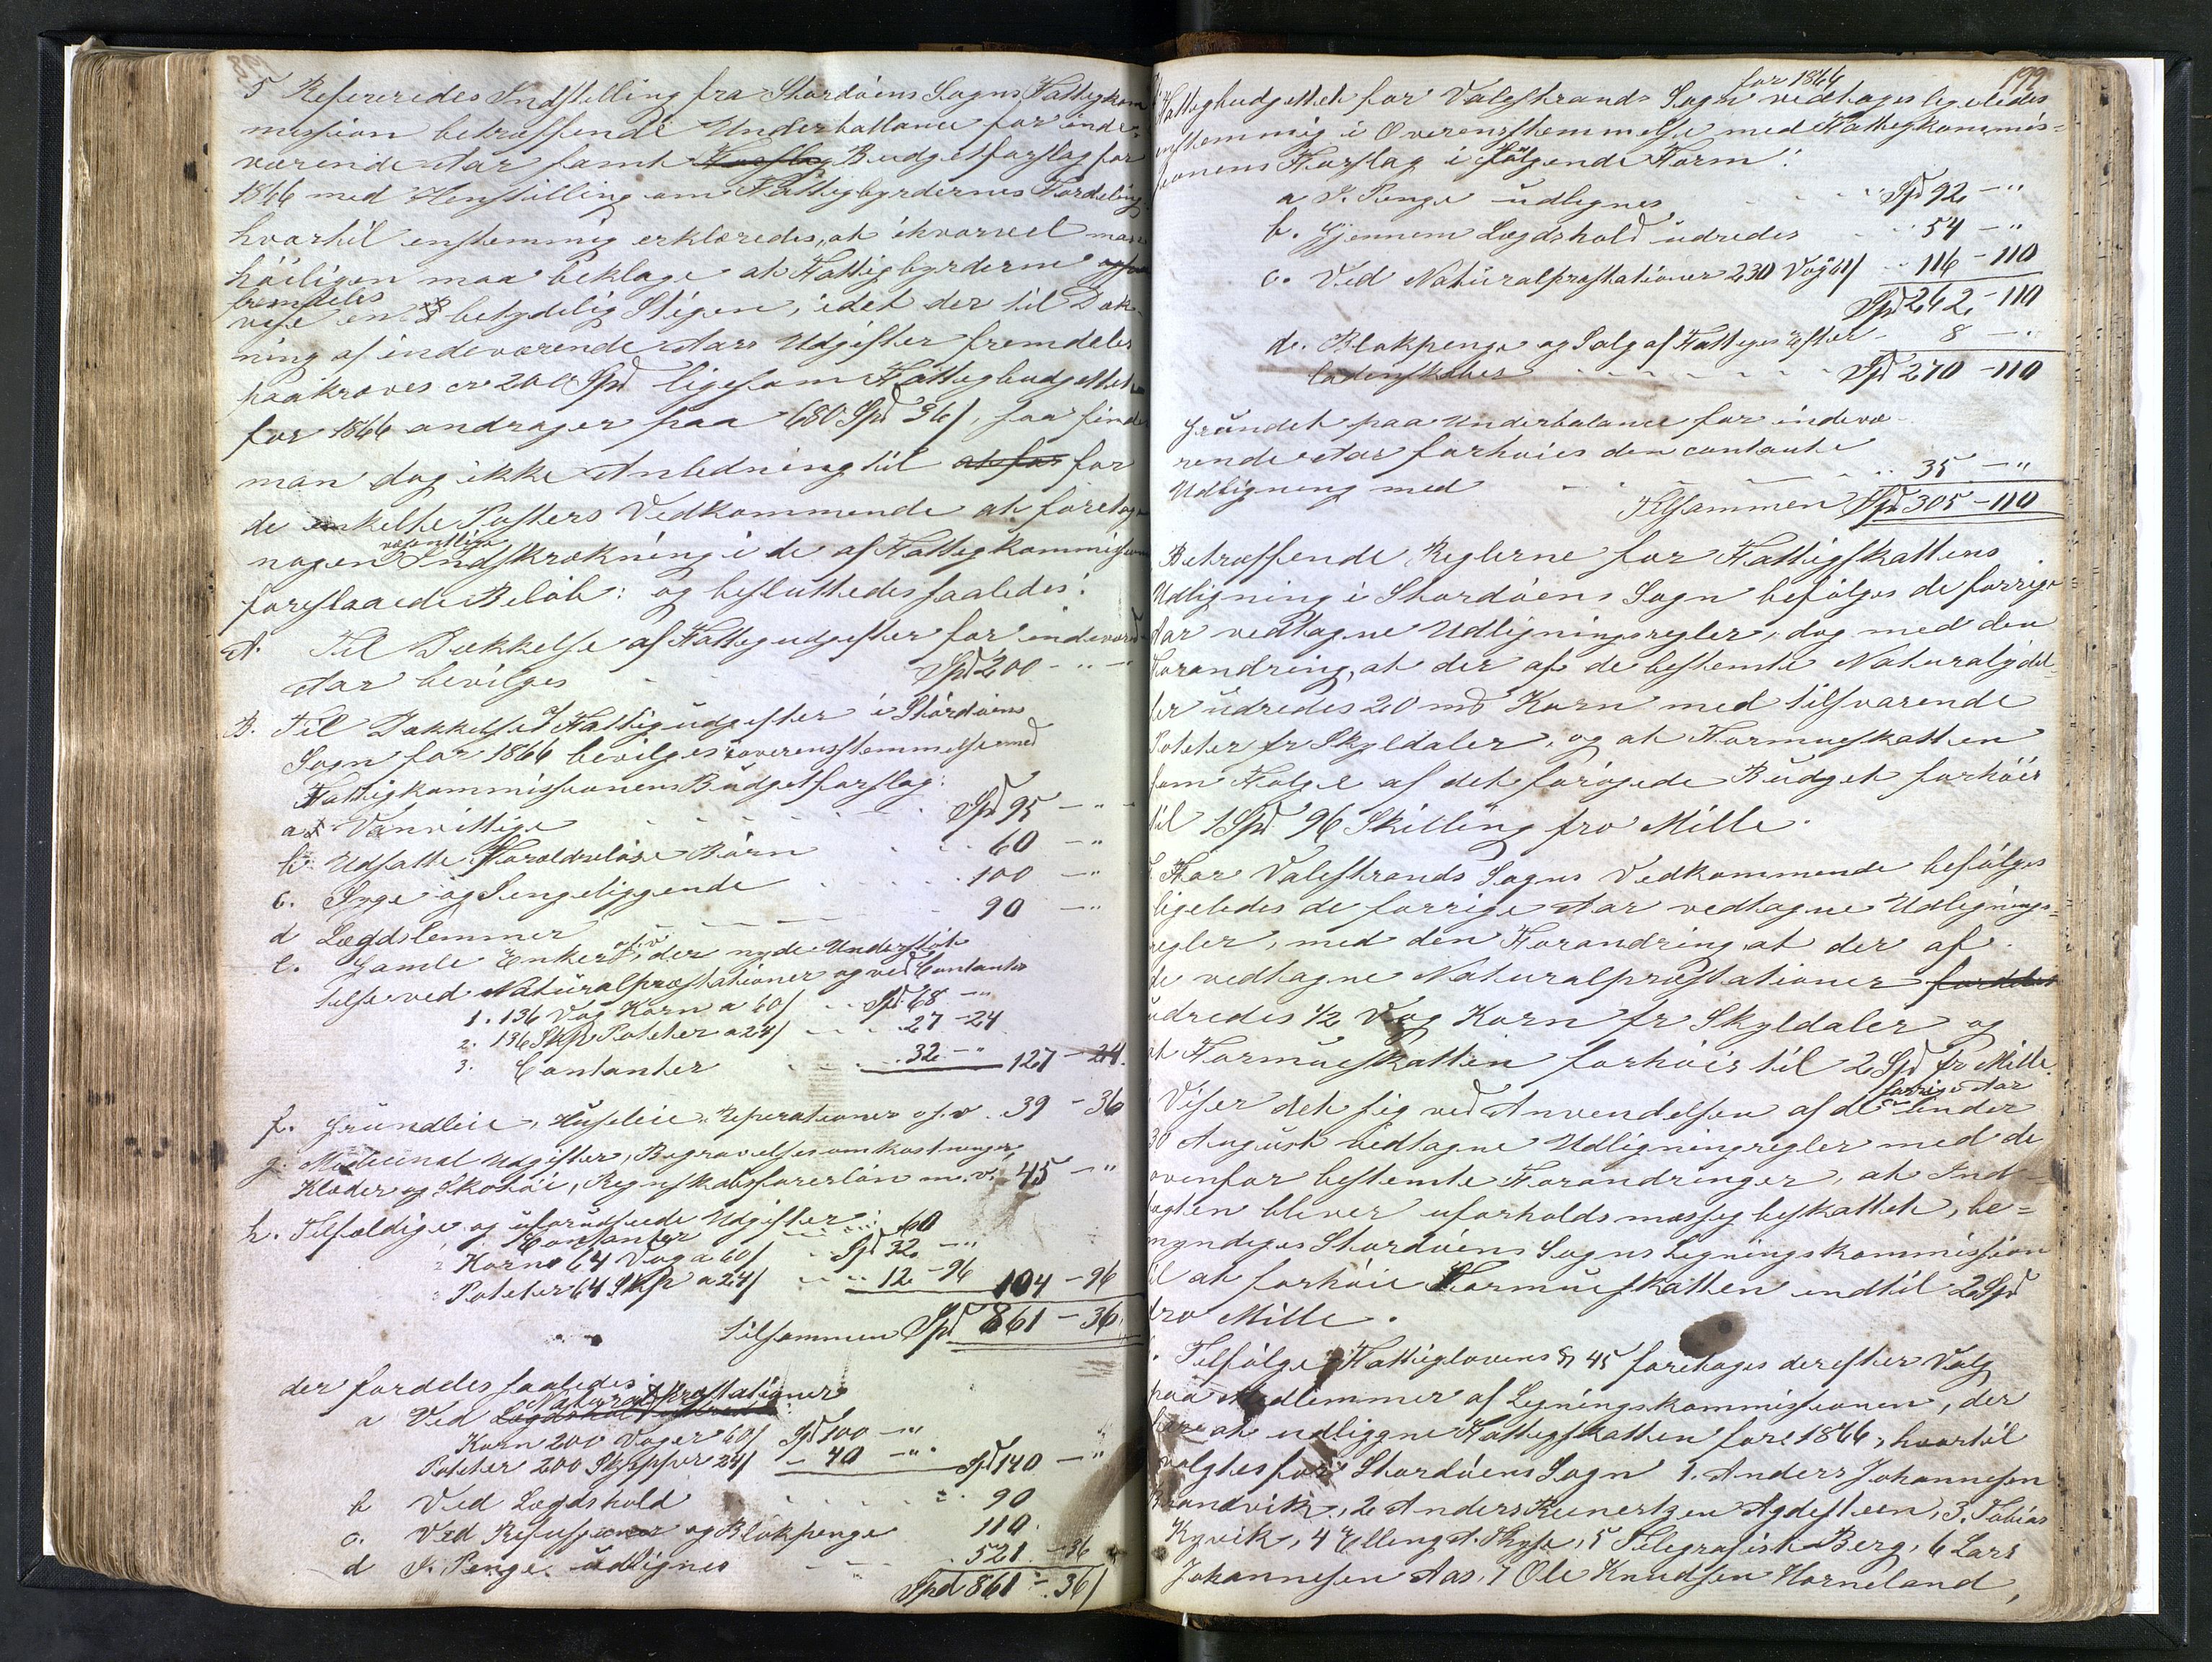 5 Refereredes Indstilling fra Stordøens Sogns Fattigkom
mission betræffende Underballance for inde-
værende Aar samt Forslag Budgetforslag for
1866 med Henstilling om Fattigbyrdernes Fordeling
hvortil enstemmig erklæredes, at ihvorvel man
høiligen maa beklage at Fattigbyrderne
fremdeles
vise en betydelig Stigen, idet der til Dæk-
ning af indeværende Aars Udgifter fremdeles
paakræves cr 200 Spd ligesom Fattigbudgettet
for 1866 andrager paa 680 Spd 36/, saa finder
man dog ikke Anledning til at for for
de enkelte Posters Vedkommende at foretage
væsentlige
nogen Indskrækning i de af Fattigkommissionen
foreslaaede Beløb: og besluttedes saaledes:
A. Til Dækkelse af Fattigudgifter for indeværende
Aar bevilges Spd 200 - "
B. Til Dækkelse af Fattigudgifter i Stordøens
Sogn for 1866 bevilges i overensstemmelse med
Fattigkommissionens Budgetforslag:
a Vanvittige Spd 95 - "
b. Udsatte Forældreløse Børn 60 - "
c. Syge og Sengeliggende 100 - "
d Lægdslemmer 90 - "
e. Gamle Enker o.s.v. der nyde Understøt
telse ved Naturalpræstationer og ved Contanter
1. 136 Vog Korn a 60/ Spd 68 - "
2. 136 Skp Poteter a 24/ 27 - 24
3. Contanter 32 - " 127 - 24.
f. Grundleie, Husleie, Reperationer o.s.v. 39 - 36
g. Medicinal Udgifter, Begravelsesomkostninger,
Klæder og Skotøi, Regnskabsførerløn m.v. 45 - "
h. Tilfældige og uforudseede Udgifter:
1 Contanter 60
2 Korn 64 Vog a 60/ Spd 32 - "
Poteter 64 Skp a 24/ 12 - 96 104 - 96
tilsammen Spd 861 - 36
der fordeles saaledes:
Naturalpræstationer
a Ved Lægdshold
Korn 200 Voger 60/ Spd 100 - "
Poteter 200 Skjepper 24/ - 40 - " Spd 140 - "
b Ved Lægdshold 90
c. Ved Refusioner og Blokpenge 110.
d I Penge udlignes 521 - 36
Spd 861 - 36/
199
for 1866
Fattigbudgettet for Valestrands Sogn vedtages ligeledes
enstemmig i Overensstemmelse med Fattigkommis=
sionens Forslag i følgende Form:
a I Penge udlignes Spd 92 - "
b. Gjennem Lægdshold udredes 54 - "
c. Ved Naturalpræstationer 230 Vog 61/ 116 - 110
Spd 262 - 110
d. Blokpenge og Salg af Fattiges Efter- 8 - "
ladenskaber Spd 270 - 110
Grundet paa Underbalance for indevæ-
rende Aar forhøies den contante
Udligning med 35 - "
Tilsammen Spd 305 - 110
Betræffende Reglerne for Fattigskattens
Udligning i Stordøens Sogn befølges de forrige
Aar vedtagne Udligningsregler, dog med den
Forandring, at der af de bestemte Naturalydel-
ser udredes 20 md Korn med tilsvarende
Poteter pr Skylddaler, og at Formueskatten
som Følge af det forøgede Budget forhøies
til 1 Spd 96 Skilling pro Mille.
For Valestrands Sogns Vedkommende befølges
ligeledes de forrige Aar vedtagne Udlignings=
regler, med den Forandring at der af
de vedtagne Naturalpræstationer fordeles
udredes 1/2 Vog Korn pr Skyldaler og
at Formueskatten forhøies til 2 Spd pr Mille.
forrige Aar
Viser det sig ved Anvendelsen af de under
30 August vedtagne Udligningregler med de
ovenfor bestemte Forandringer, at Ind-
tægten bliver uforholdsmæssig beskattet, be=
myndiges Stordøens Sogns Ligningskommission
til at forhøie Formueskatten indtil 2 Spd
pro Mille.
Tilfølge Fattiglovens § 45 foretoges derefter Valg
paa Medlemmer af Ligningskommissionen, der
have at udliggne Fattigskatten for 1866, hvortil
valgtes for Stordøens Sogn 1. Anders Johannesen
Brandvik, 2 Anders Reinertzen Agdesteen, 3. Tobias
Kyvik, 4 Elling A. Thyse, 5 Telegrafist Berg, 6 Lars
Johannesen Aas, 7 Ole Knudsen Horneland,